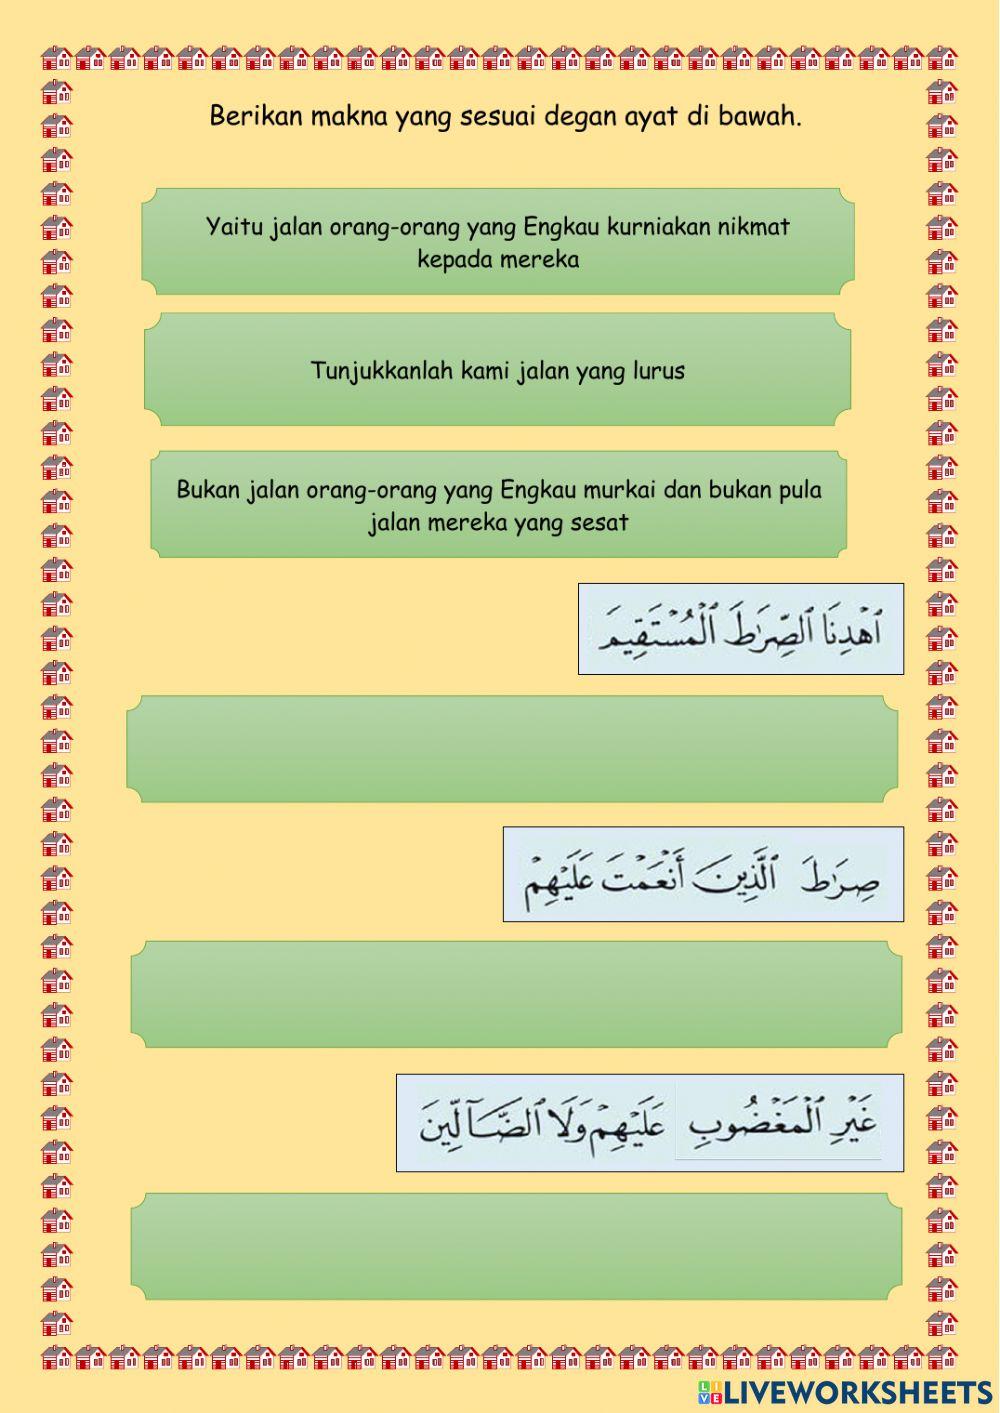 Berikan makna yang sesuai degan ayat di bawah.
Yaitu jalan orang-orang yang Engkau kurniakan nikmat
kepada mereka
Tunjukkanlah kami jalan yang lurus
Bukan jalan orang-orang yang Engkau murkai dan bukan pula
jalan mereka yang sesat
ٱهْدِنَا ٱلصِّرَٰطَ ٱلْمُسْتَقِيمَ
صِرَٰطَ ٱلَّذِينَ أَنْعَمْتَ عَلَيْهِمْ
غَيْرِ ٱلْمَغْضُوبِ عَلَيْهِمْ وَلَا ٱلضَّآلِّينَ
LIVE LIVEWORKSHEETS